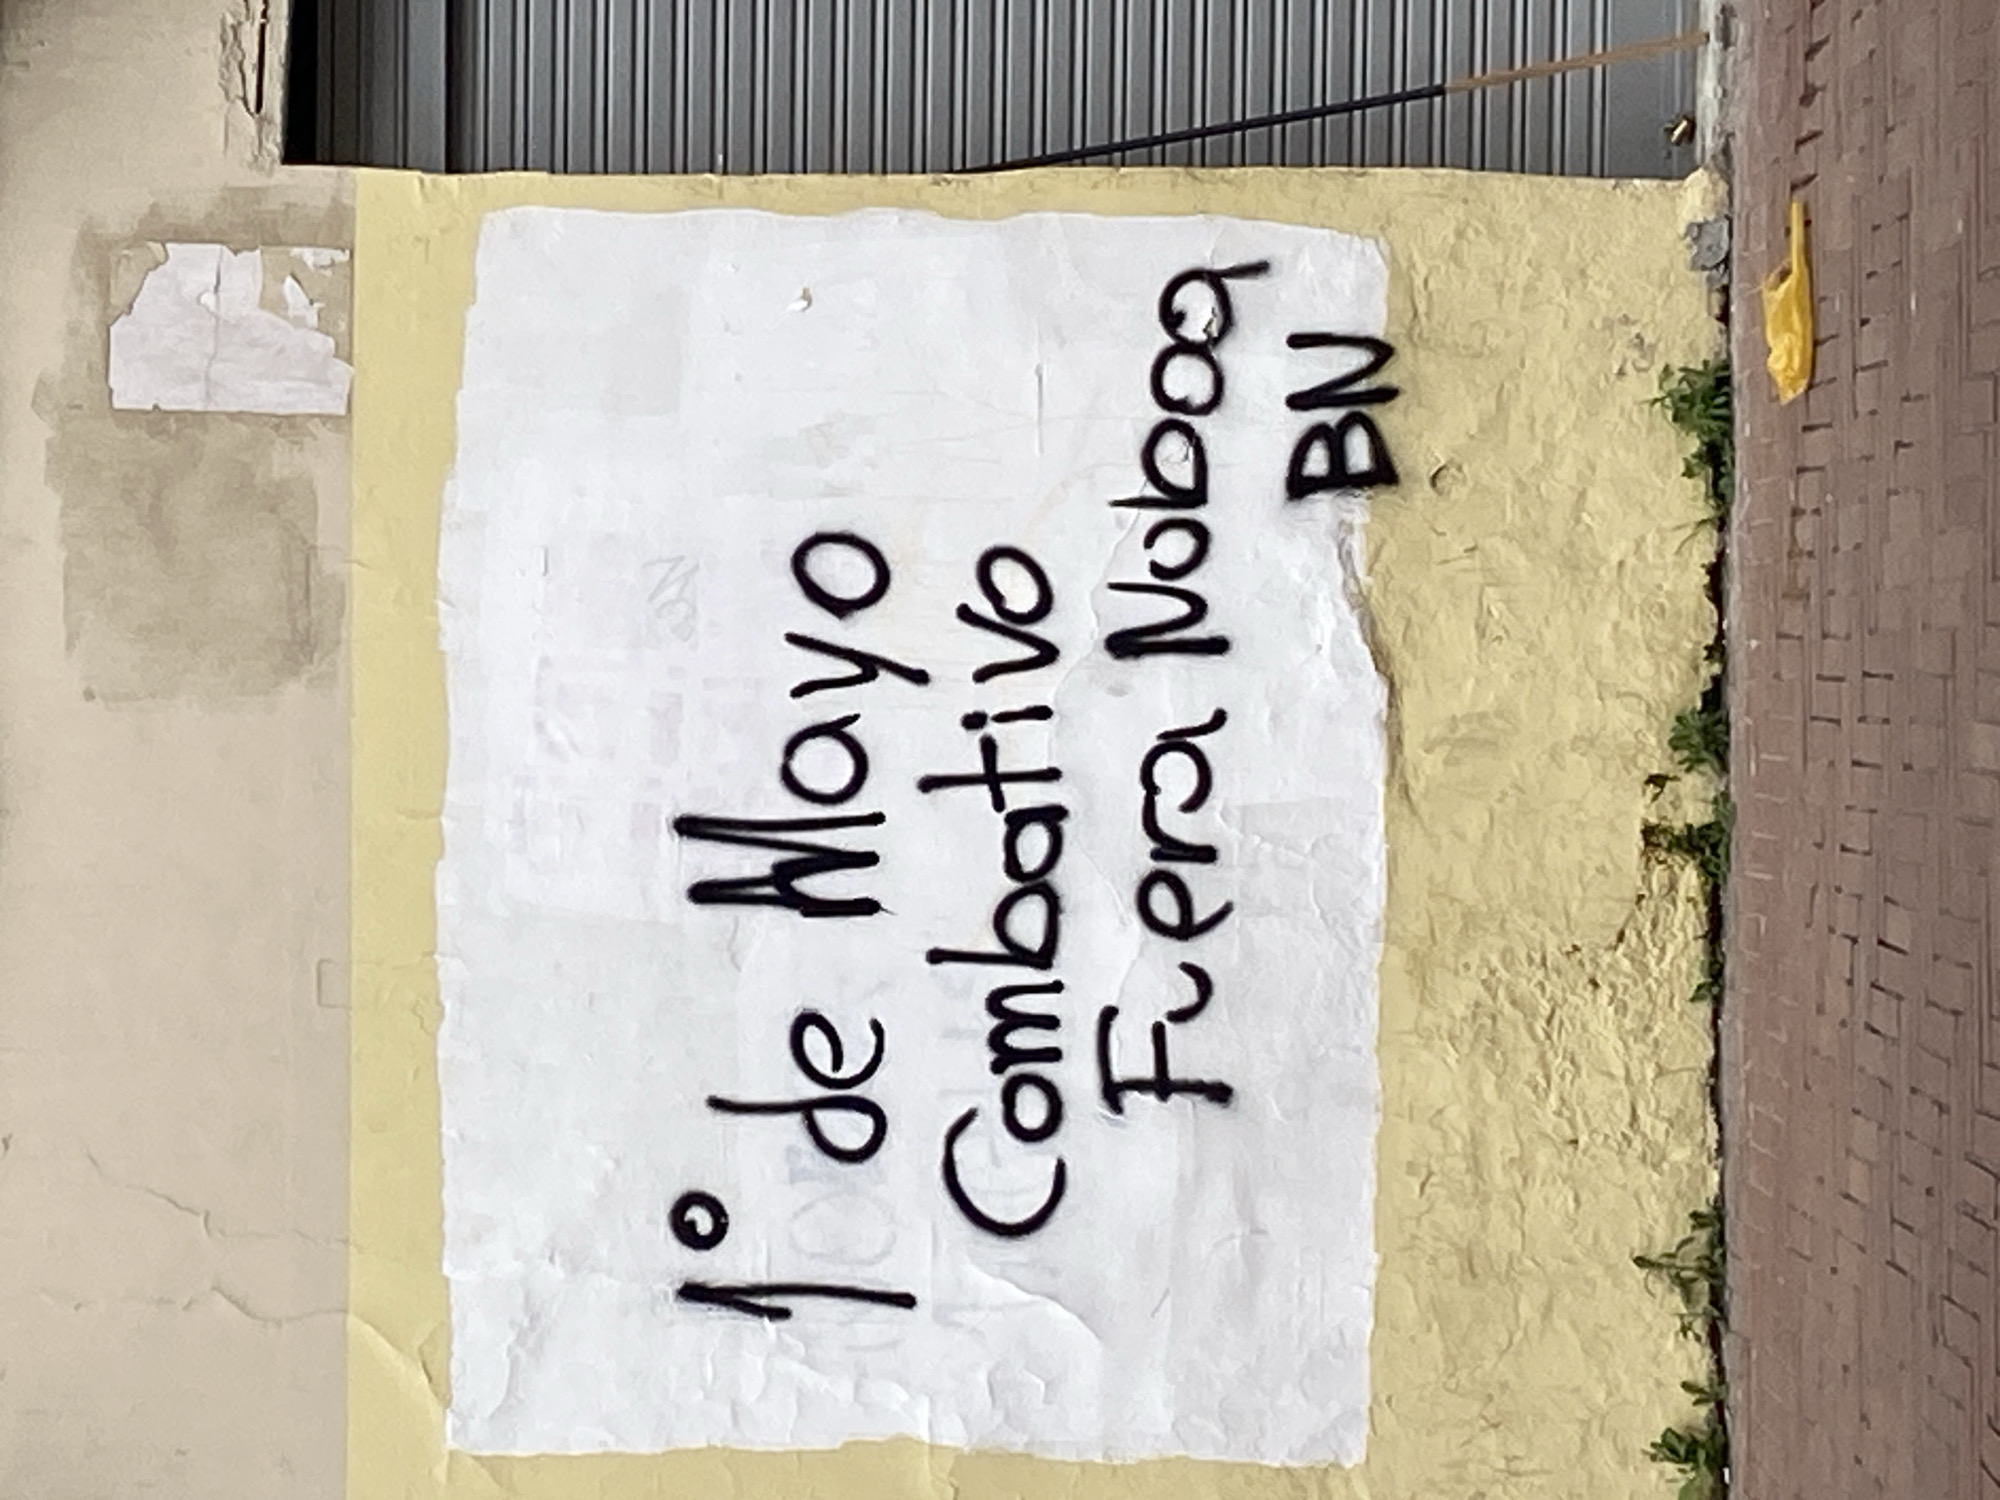 1° de Mayo
Combativo
Fuera Noboa
BN